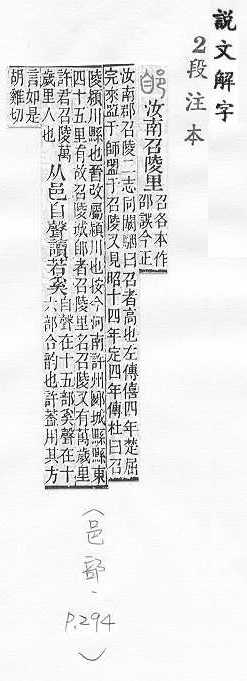 說文解字
2段注本
郋
汝南召陵里
召各本作
邵誤今正
汝南郡召陵二志同闞駰曰召者高也左傳僖四年楚屈
完來盟于師盟于召陵又見昭十四年定四年傳杜曰召
陵潁川縣也晉改屬潁川也按今河南許州郾城縣縣東
四十五里有故召陵城郋者召陵里名召陵又有萬歲里
許君召陵萬
歲里人也
从邑自聲讀若奚
自聲在十五部奚聲在十
六部合韵也許葢用其方
言如是
胡雞切
(邑部、P.294)